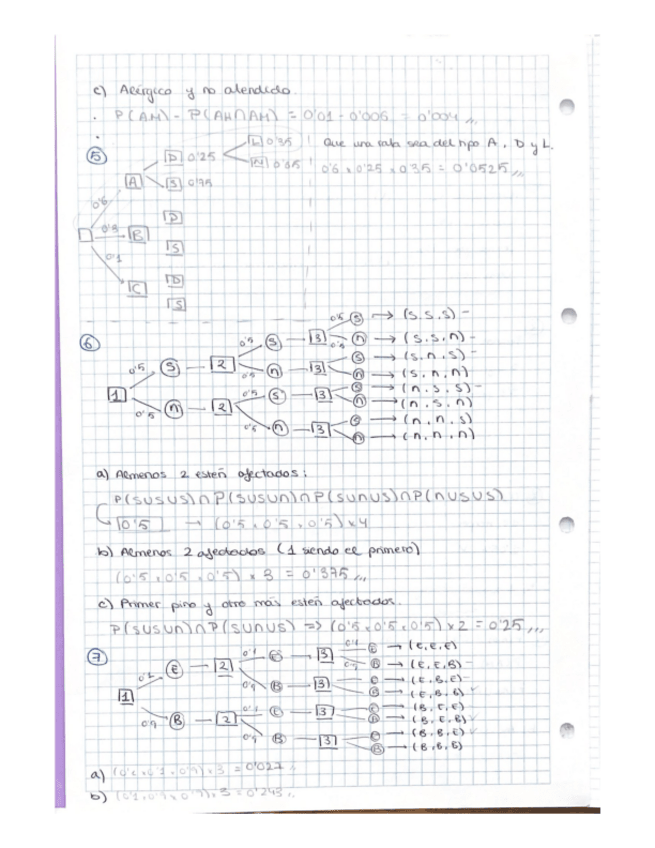 c) Alérgico y no atendido.
P(AM) - P(AH∩AM) = 0'01 - 0'006 = 0'004
5
A D 0'25 L 0'35 Que una rata sea del tipo A, D y L.
N 0'65 0'6 x 0'25 x 0'35 = 0'0525
S 0'75
0'6
0'3 B D
S
0'1 C D
S
6
1 0'5 s 2 0'5 s 3 0'5 s → (s, s, s) -
0'5 n → (s, s, n) -
0'5 n 3 s → (s, n, s) -
n → (s, n, n)
0'5 n 2 0'5 s 3 s → (n, s, s) -
n → (n, s, n)
0'5 n 3 s → (n, n, s)
n → (n, n, n)
a) Almenos 2 esteñ afectados:
P(SUSUS)∩P(SUSUn)∩P(SUnUS)∩P(nUSUS)
0'5 → (0'5 x 0'5 x 0'5) x 4
b) Almenos 2 afectados (1 siendo el primero)
(0'5 x 0'5 x 0'5) x 3 = 0'375
c) Primer pino y otro más esteñ afectados.
P(SUSUn)∩P(SUnUS) => (0'5 x 0'5 x 0'5) x 2 = 0'25
7
1 E 2 0'1 E 3 0'1 E → (E, E, E)
0'9 B → (E, E, B) -
0'9 B 3 E → (E, B, E) -
B → (E, B, B) ✓
0'9 B 2 0'1 E 3 E → (B, E, E)
B → (B, E, B) ✓
0'9 B 3 E → (B, B, E) ✓
B → (B, B, B)
a) x 3 = 0'027
b) (0'1 x 0'9 x 0'9) x 3 = 0'243